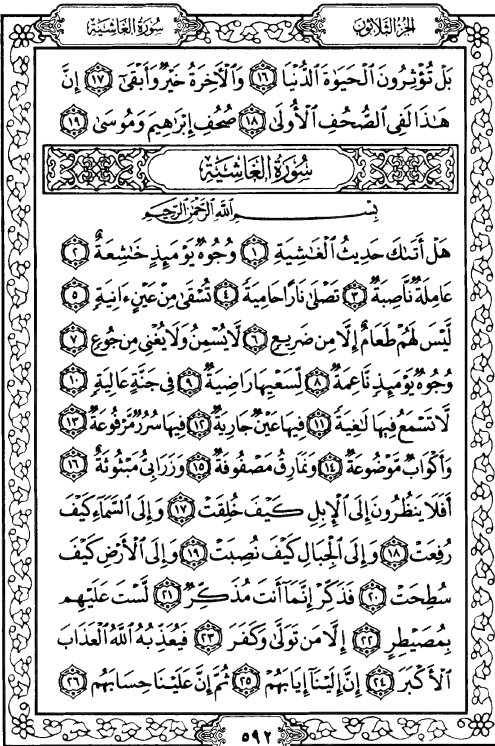 سُورَةُ الغَاشِيَة
الجُزْءُ الثَّلَاثُونَ
بَلْ تُؤْثِرُونَ الْحَيَوٰةَ الدُّنْيَا ١٦ وَالْآخِرَةُ خَيْرٌ وَأَبْقَىٰٓ ١٧ إِنَّ
هَـٰذَا لَفِى الصُّحُفِ الْأُولَىٰ ١٨ صُحُفِ إِبْرَٰهِيمَ وَمُوسَىٰ ١٩
سُورَةُ الغَاشِيَة
بِسْمِ اللَّهِ الرَّحْمَٰنِ الرَّحِيمِ
هَلْ أَتَىٰكَ حَدِيثُ الْغَـٰشِيَةِ ١ وُجُوهٌ يَوْمَئِذٍ خَـٰشِعَةٌ ٢
عَامِلَةٌ نَّاصِبَةٌ ٣ تَصْلَىٰ نَارًا حَامِيَةً ٤ تُسْقَىٰ مِنْ عَيْنٍ ءَانِيَةٍ ٥
لَّيْسَ لَهُمْ طَعَامٌ إِلَّا مِن ضَرِيعٍ ٦ لَّا يُسْمِنُ وَلَا يُغْنِى مِن جُوعٍ ٧
وُجُوهٌ يَوْمَئِذٍ نَّاعِمَةٌ ٨ لِّسَعْيِهَا رَاضِيَةٌ ٩ فِى جَنَّةٍ عَالِيَةٍ ١٠
لَّا تَسْمَعُ فِيهَا لَـٰغِيَةً ١١ فِيهَا عَيْنٌ جَارِيَةٌ ١٢ فِيهَا سُرُرٌ مَّرْفُوعَةٌ ١٣
وَأَكْوَابٌ مَّوْضُوعَةٌ ١٤ وَنَمَارِقُ مَصْفُوفَةٌ ١٥ وَزَرَابِىُّ مَبْثُوثَةٌ ١٦
أَفَلَا يَنظُرُونَ إِلَى الْإِبِلِ كَيْفَ خُلِقَتْ ١٧ وَإِلَى السَّمَآءِ كَيْفَ
رُفِعَتْ ١٨ وَإِلَى الْجِبَالِ كَيْفَ نُصِبَتْ ١٩ وَإِلَى الْأَرْضِ كَيْفَ
سُطِحَتْ ٢٠ فَذَكِّرْ إِنَّمَآ أَنتَ مُذَكِّرٌ ٢١ لَّسْتَ عَلَيْهِم
بِمُصَيْطِرٍ ٢٢ إِلَّا مَن تَوَلَّىٰ وَكَفَرَ ٢٣ فَيُعَذِّبُهُ اللَّهُ الْعَذَابَ
الْأَكْبَرَ ٢٤ إِنَّ إِلَيْنَآ إِيَابَهُمْ ٢٥ ثُمَّ إِنَّ عَلَيْنَا حِسَابَهُم ٢٦
٥٩٢